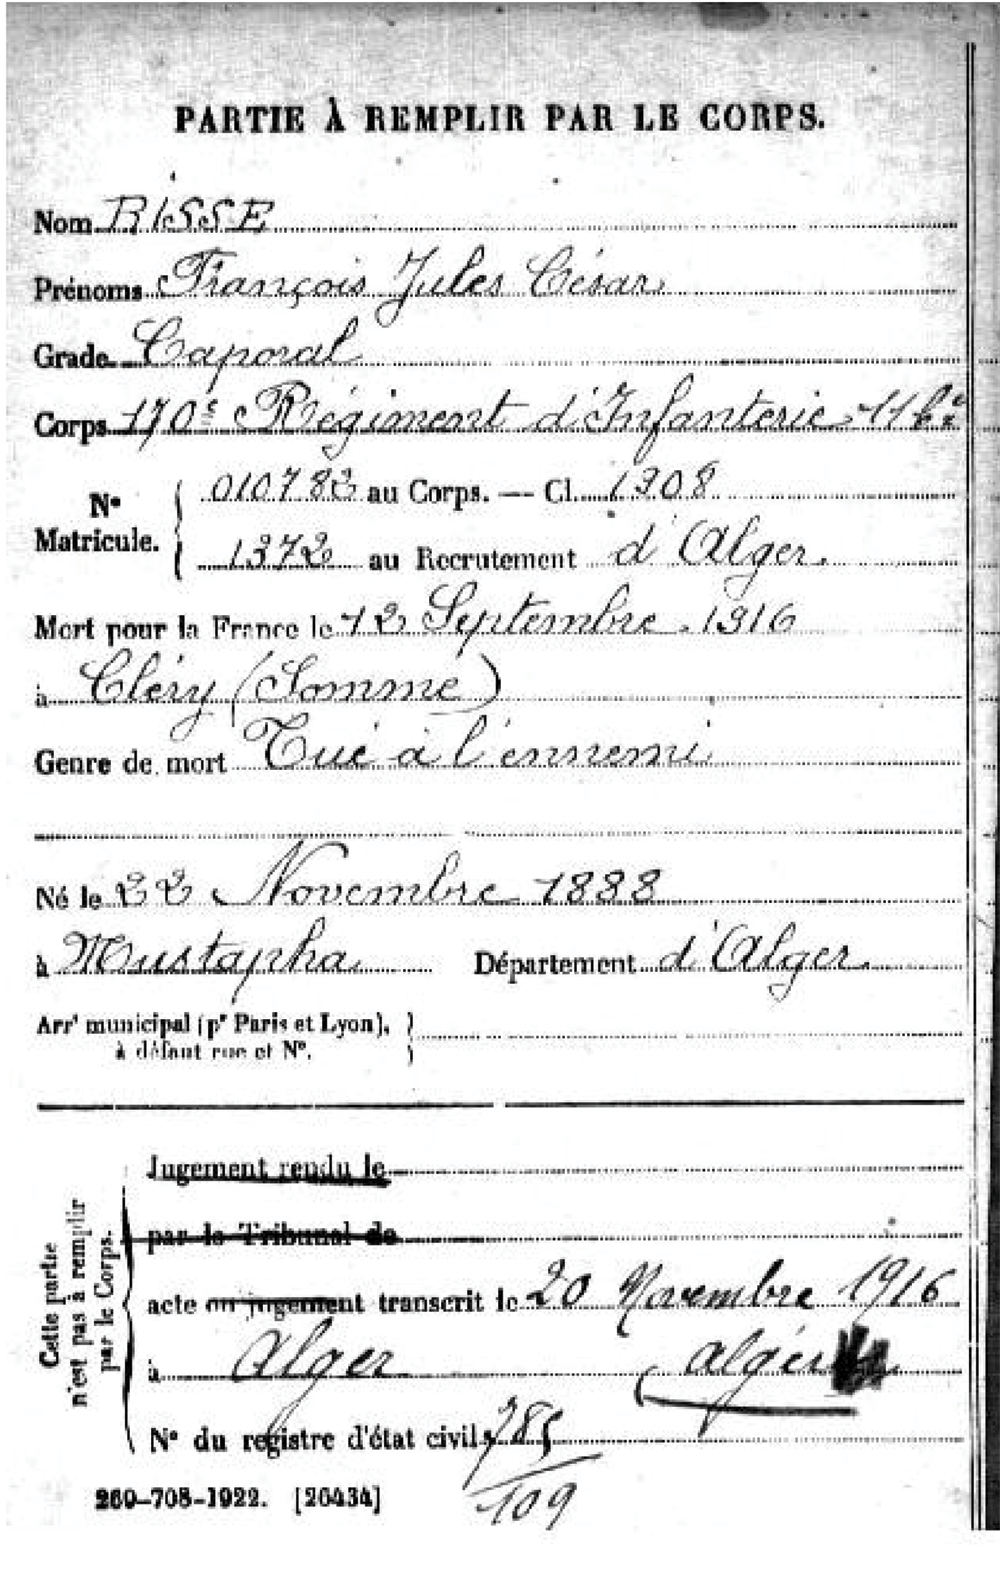 PARTIE À REMPLIR PAR LE CORPS.
Nom RISSE
Prénoms François Jules César
Grade Caporal
Corps 170e Régiment d'Infanterie - 11e
N° Matricule. 010783 au Corps. — Cl. 1908
1372 au Recrutement d'Alger.
Mort pour la France le 12 Septembre 1916
à Cléry (Somme)
Genre de mort Tué à l'ennemi
Né le 22 Novembre 1888
à Mustapha Département d'Alger.
Arrt municipal (pr Paris et Lyon),
à défaut rue et N°.
Cette partie n'est pas à remplir par le Corps.
Jugement rendu le
par le Tribunal de
acte ou jugement transcrit le 20 Novembre 1916
à Alger
N° du registre d'état civil 785
109
260-708-1922. [26434]